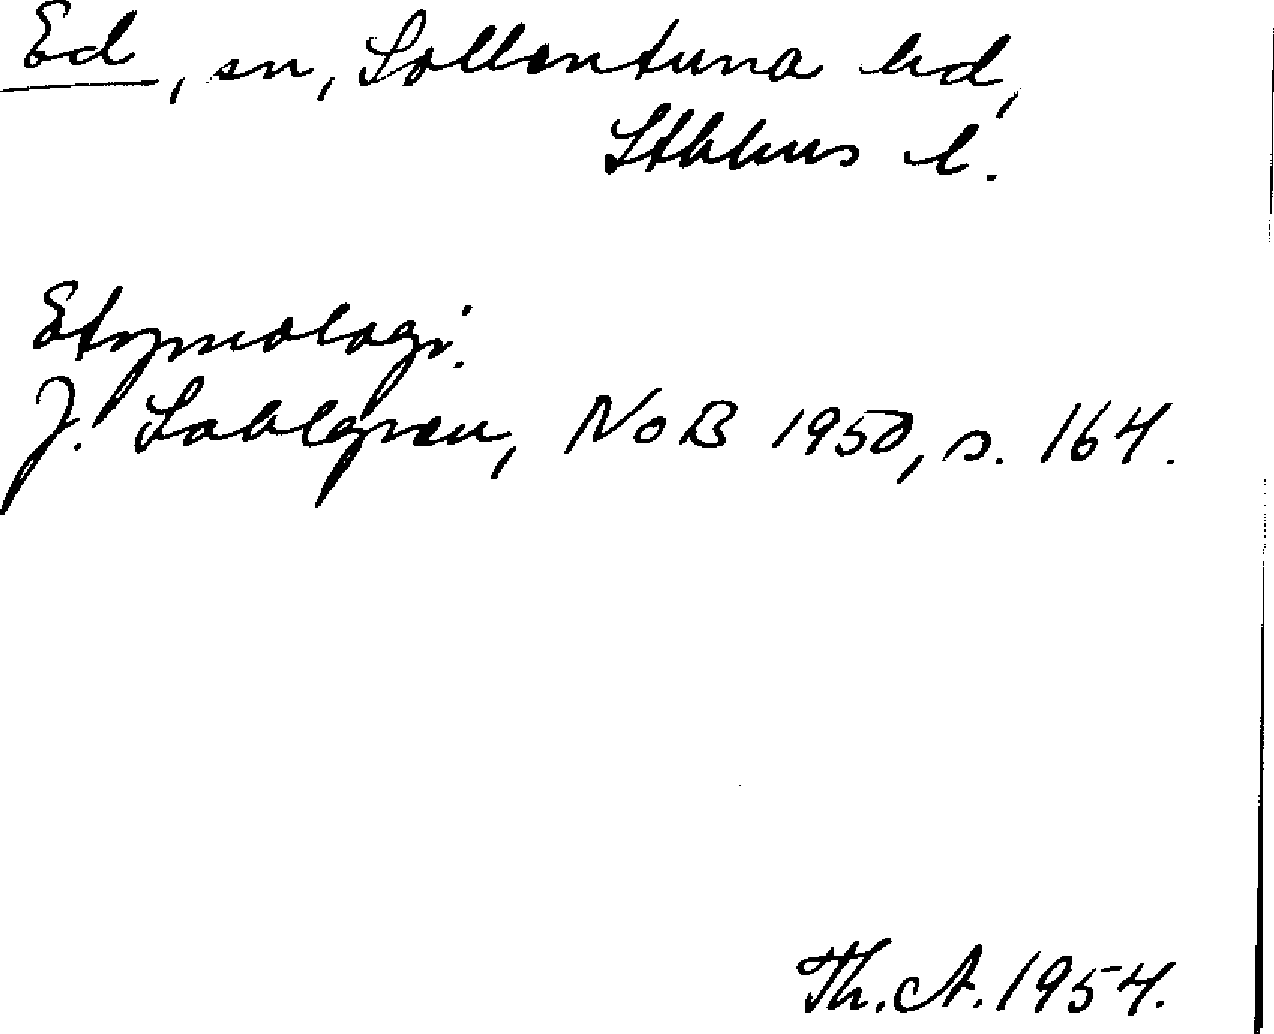 Ed, sn, Sollentuna hd,
Sthlms l.
Etymologi.
J. Sahlgren, NoB 1950, s. 164.
Th. A. 1954.